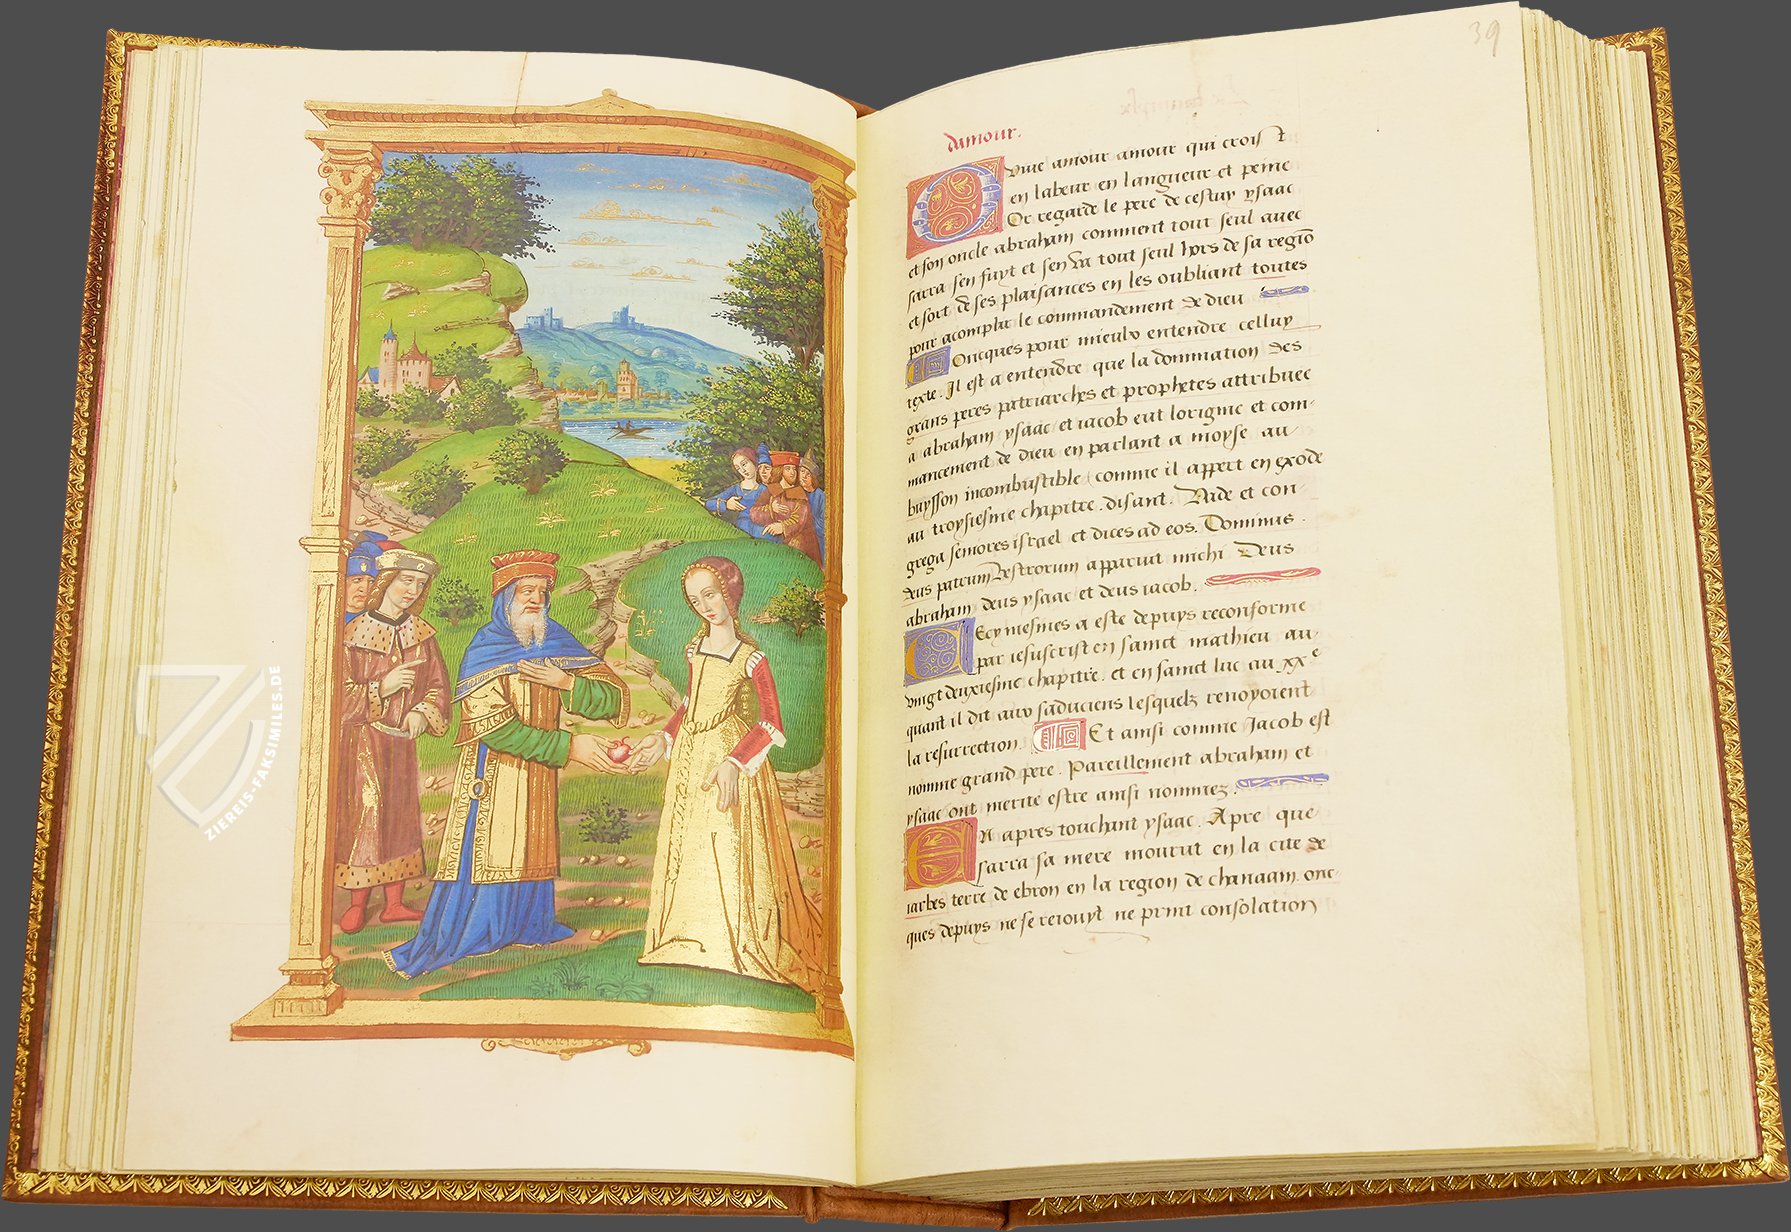 39
damour.
Ovure amour amour qui crois &
en labeur en langueur et peine
Or regarde le pere de cestuy ysaac
et son oncle abraham comment tout seul avec
sarra sen fuyt et sen va tout seul hors de sa regiõ
et sort de ses plaisances en les oubliant toutes
pour acomplir le commandement de dieu
Doncques pour mieulx entendre celluy
texte. Il est a entendre que la domination des
grans peres patriarches et prophetes attribuee
a abraham ysaac et iacob eut lorigine et com-
mancement de dieu en parlant a moyse au
buysson incombustible comme il appert en exode
au troysiesme chapitre. disant. Vade et con-
grega seniores israel et dices ad eos. Dominus
deus patrum vestrorum apparuit michi Deus
abraham deus ysaac et deus iacob.
Cecy mesmes a este depuys reconforme
par iesuscrist en sainct mathieu au
vingt deuxiesme chapitre. et en sainct luc au xxe
quant il dit aux saduciens lesquelz renoyoient
la resurrection. Et ainsi comme Jacob est
nomme grand pere. Pareillement abraham et
ysaac ont merite estre ainsi nommez.
En apres touchant ysaac. Apre que
sarra sa mere mourut en la cite de
iarbes terre de ebron en la region de chanaam. onc-
ques depuys ne se reiouyt ne print consolation
ZIEREIS-FAKSIMILES.DE